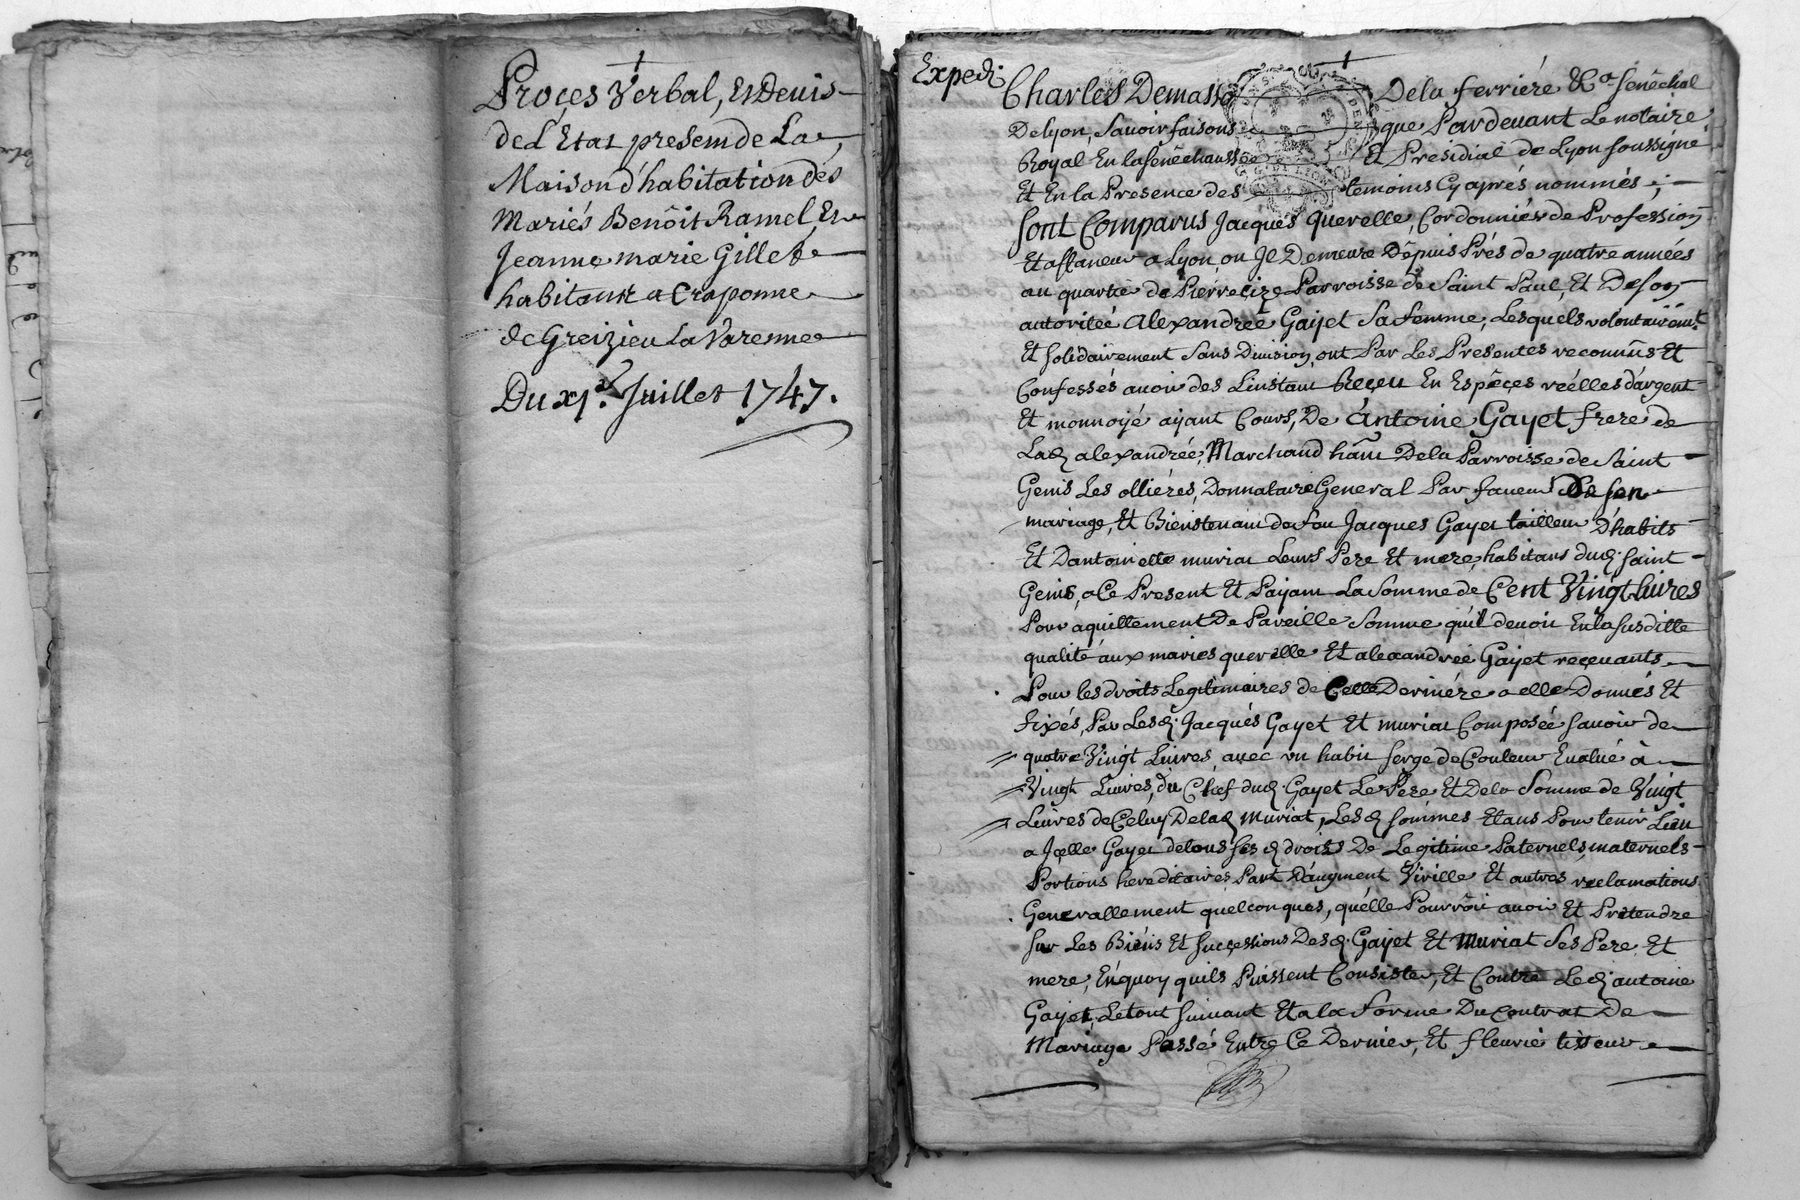 Proçes Verbal, Et Devis
de L'Etat present de La
Maison d'habitation des
Mariés Benôit Ramel, Et
Jeanne marie Gillet
habitant a Craponne
de Greizieu La Varenne
Du xj.e Juillet 1747.
Expedi.
Charles Demasso Dela ferriére &c.a sénéchal
De Lyon, Savoir faisons que Pardevant Le notaire
Royal En la sénéchaussée Et Presidial de Lyon soussigné
Et En la Presence des temoins Cy aprés nommés;
Sont Comparus Jacques Querelle, Cordonnier de Profession
Et affaneur a Lyon, ou Il Demeure Depuis Prés de quatre années
au quartier de Pierre cize Parroisse de Saint Paul, Et De son
autoritée Alexandreé Gaÿet Sa femme, Lesquels volontairemt.
Et solidairement Sans Division ont Par Les Presentes reconnûs Et
Confessés avoir des Linstant Reçeu En Espéces réelles d'argent
Et monnoÿé aÿant Cours, De Antoine Gayet frere de
Lad. alexandreé, Marchand hãnt Dela Parroisse de Saint
Genis Les olliéres, Donnataire General Par faveur De son
mariage, Et Bienstenant de feu Jacques Gayet tailleur D'habits
Et Dantoinette muriat Leurs Pere Et mere, habitans dud. Saint
Genis, a Ce Present Et Paÿant La Somme de Cent Vingt Livres
Pour aquittement De Pareille Somme qu'il devoit En la susditte
qualité aux mariés querelle Et alexandreé Gaÿet reçevants
Pour les droits Legitimaires de Celle Derniére a elle Donnés Et
fixés, Par Lesd. Jacqués Gayet Et muriat Composée Savoir de
quatre Vingt Livres, avec un habit serge de Couleur Evalué à
Vingt Livres, du Chef dud. Gayet Le Pere Et Dela Somme de Vingt
Livres de Celuy Delad. Muriat, Lesd. sommes Etans Pour tenir Lieu
a Jcelle Gayet de tous ses d. droits De Legitime Paternels, maternels
Portions hereditaires Part D'augment Virille Et autres reclamations
Generallement quelconques, qu'elle Pourroit avoir Et Prétendre
sur Les Biéns Et successions Desd. Gaÿet Et Muriat Ses Pere Et
mere, En quoy quils Puissent Consister, Et Contre Led. antoine
Gaÿet, Le tout suivant Et a la Forme Du Contrat De
Mariage Passé Entre Ce Dernier, Et fleurie tisseur